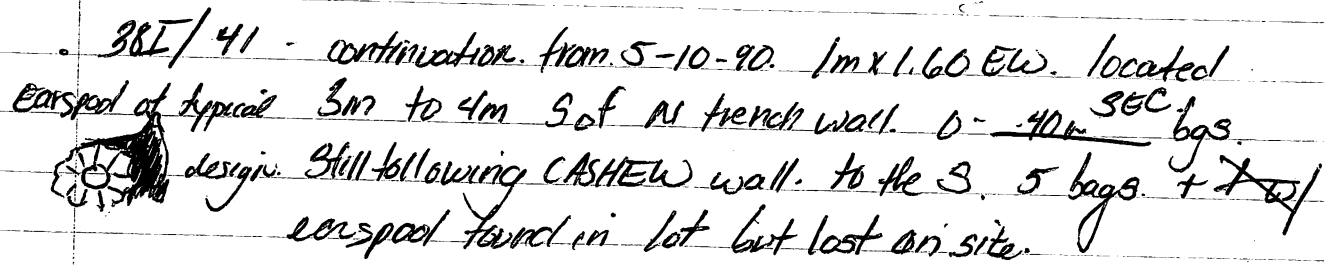 . 38I/41 - continuation from 5-10-90. 1m x 1.60 EW. located
Earspool of typical 3m to 4m S of N trench wall. 0 - .40m SEC bgs.
design. Still following CASHEW wall. to the S. 5 bags. +
earspool found in lot but lost on site.